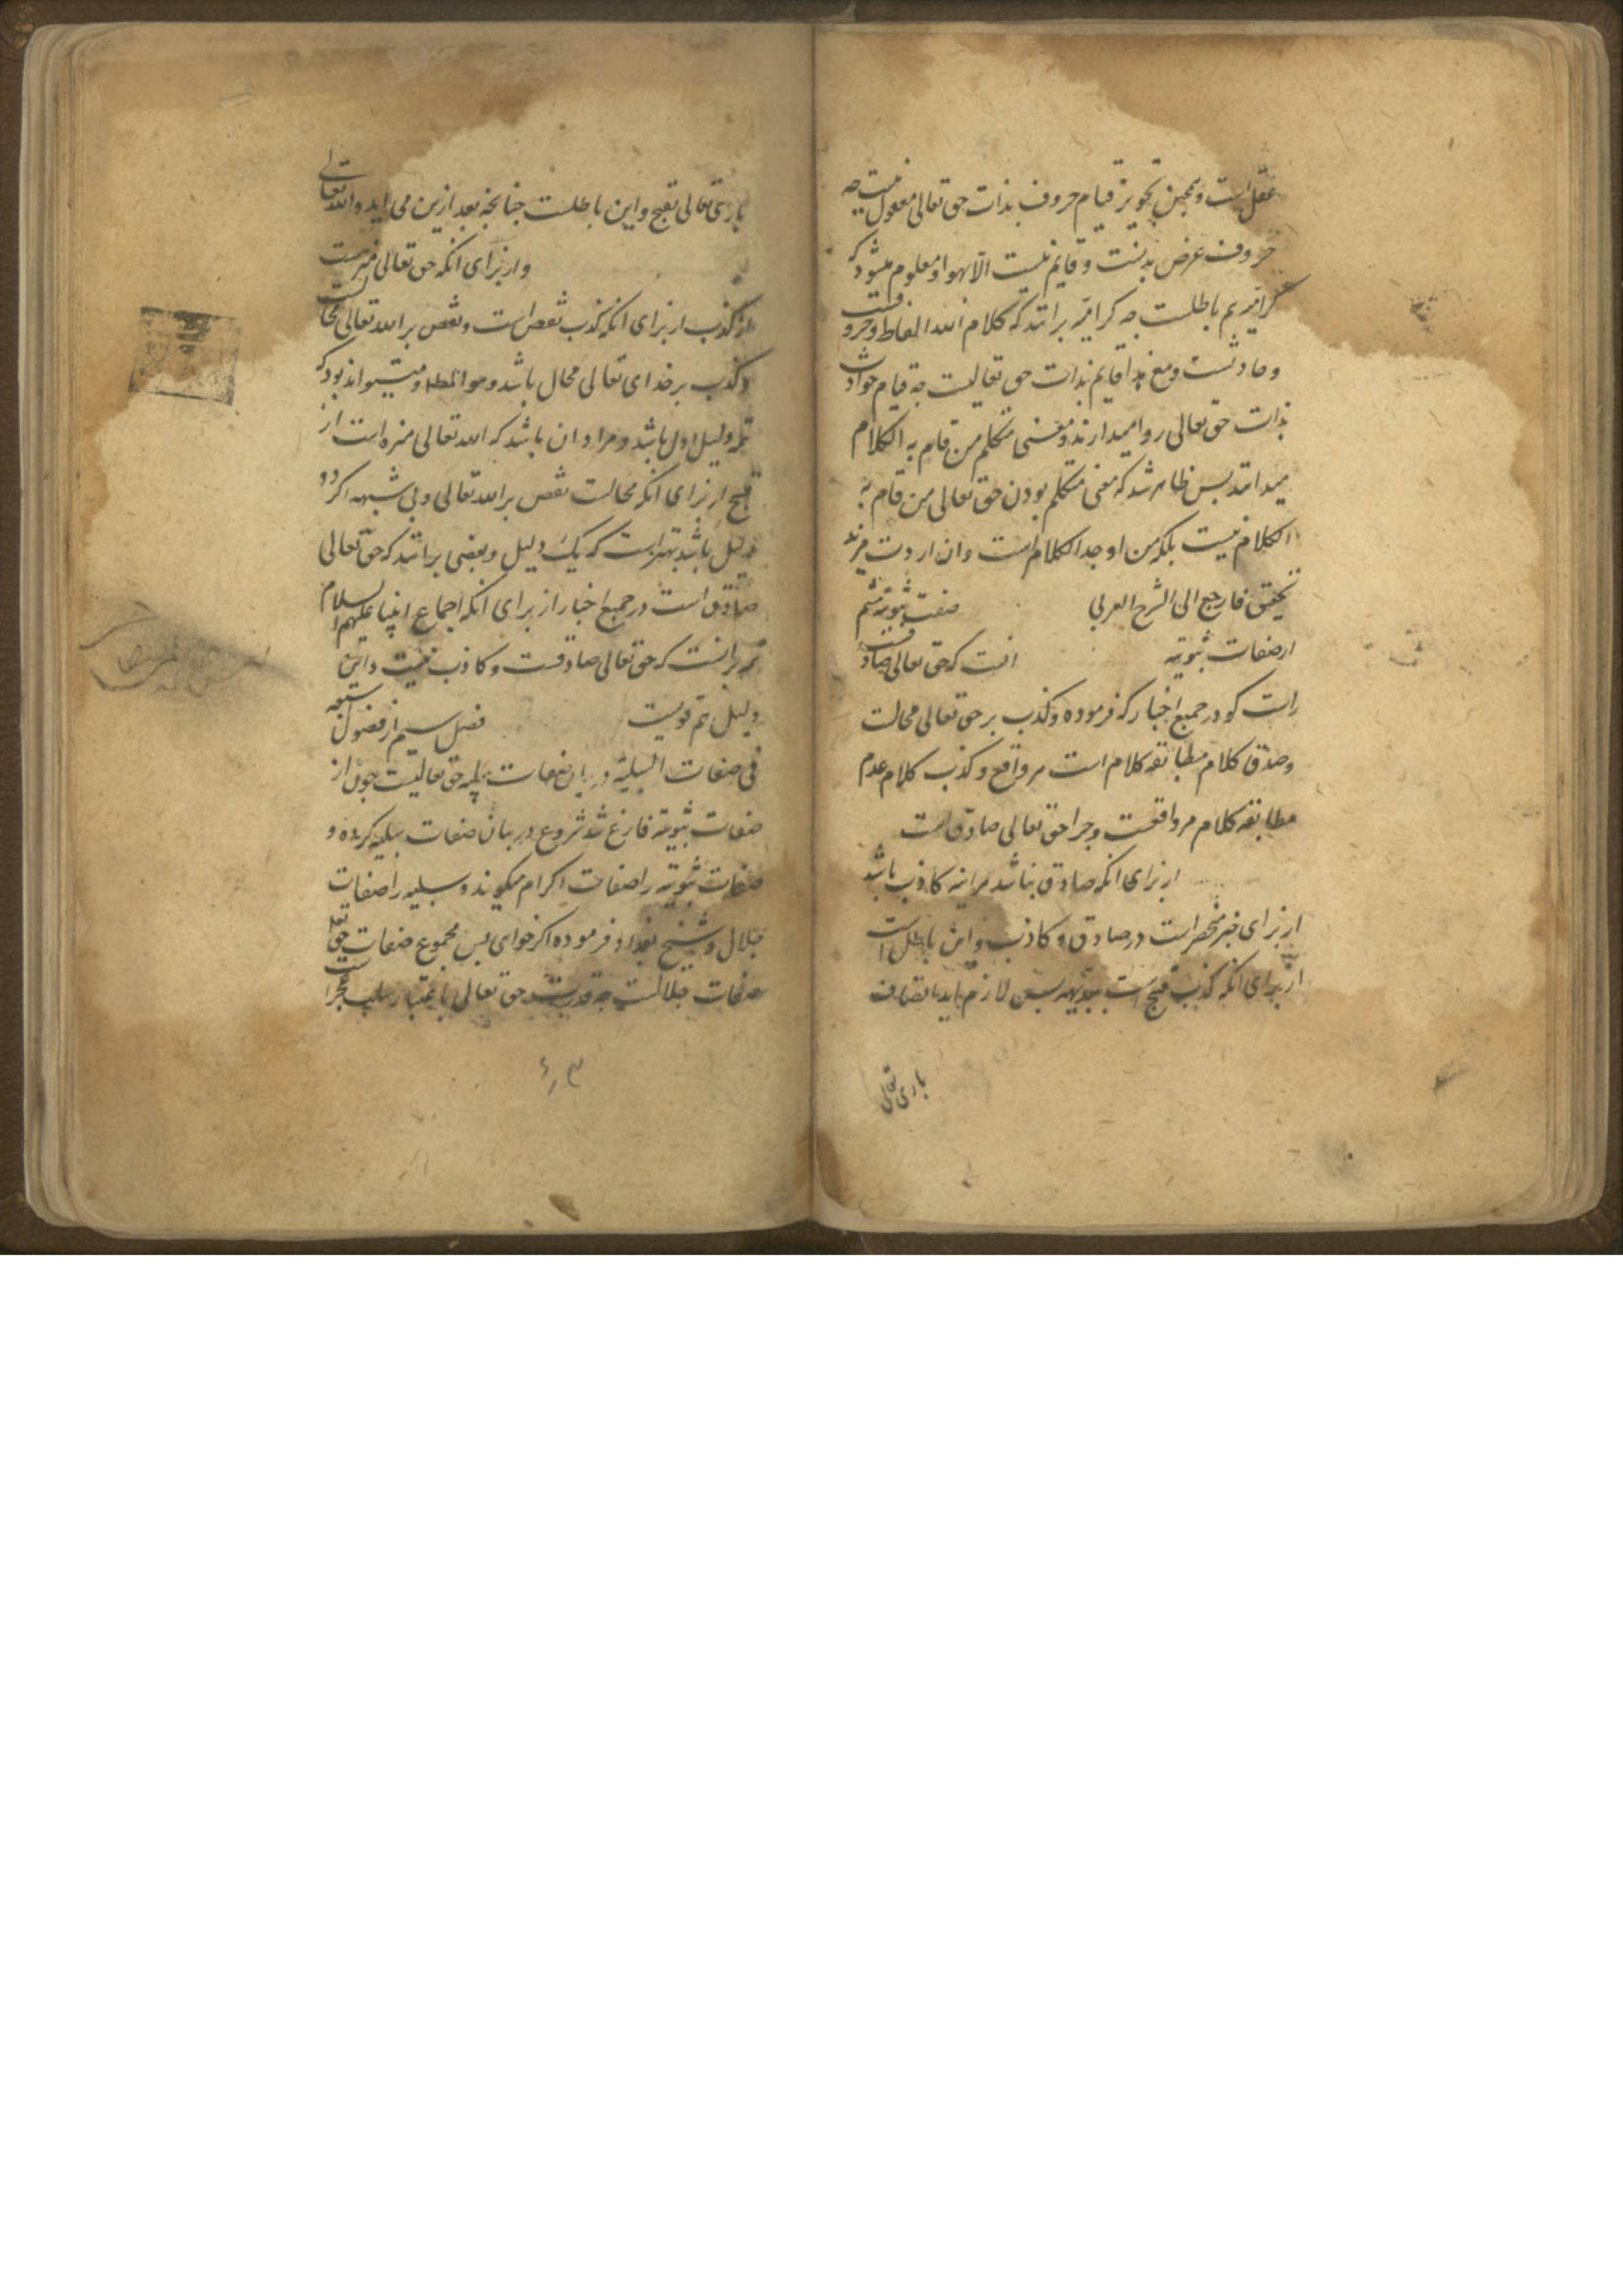 عقل است و همچنین تجویز قیام حروف بذات حق تعالی معقول نیست چه
حروف عرض بدنست و قایم نیست الا بهوا و معلوم میشود که
کرامیه هم باطلست چه کرامیه برانند که کلام الله الفاظ و حروفست
و حادثست و مع هذا قایم بذات حق تعالیست چه قیام حوادث
بذات حق تعالی روا میدارند و معنی متکلم من قام به الکلام
میدانند پس ظاهر شد که معنی متکلم بودن حق تعالی من قام به
الکلام نیست بلکه من اوجد الکلام است و ان اردت مزید
تحقیق فارجع الی الشرح العربی صفت ثبوتیه هشتم
از صفات ثبوتیه انست که حق تعالی صادقست
راست کو در جمیع اخبار که فرموده و کذب بر حق تعالی محالست
و صدق کلام مطابقه کلام است مر واقع و کذب کلام عدم
مطابقه کلام مر واقعست و چرا حق تعالی صادق است
از برای انکه صادق نباشد هراینه کاذب باشد
از برای خبر منحصر است در صادق و کاذب و این باطل است
از برای انکه کذب قبیح است بدیهة پس لازم اید اتصاف
باری تعالی
باری تعالی بقبح و این باطلست چنانچه بعد ازین می اید و الله تعالی
و از برای انکه حق تعالی منزهست
از کذب از برای انکه کذب نقص است و نقص بر الله تعالی محالست
و کذب بر خدای تعالی محال باشد و هو المط و میتواند بود که
تتمه دلیل اول باشد و مراد ان باشد که الله تعالی منزه است از
قبیح از برای انکه محالست نقص بر الله تعالی و بی شبهه اکر دو
دلیل باشد بهتر است که یک دلیل و بعضی برانند که حق تعالی
صادق است در جمیع اخبار از برای انکه اجماع انبیا علیهم السلام
همه برانست که حق تعالی صادقست و کاذب نیست و این
دلیل هم قویست فصل سیم از فصول سبعه
فی صفات السلبیة در بیان صفات سلبیه حق تعالیست چون از
صفات ثبوتیه فارغ شد شروع در بیان صفات سلبیه کرده و
صفات ثبوتیه را صفات اکرام میکویند و سلبیه را صفات
جلال و شیخ بغداد فرموده اکر خوای پس مجموع صفات حق تعالی
صفات جلالست چه قدرت حق تعالی باعتبار سلب عجز است